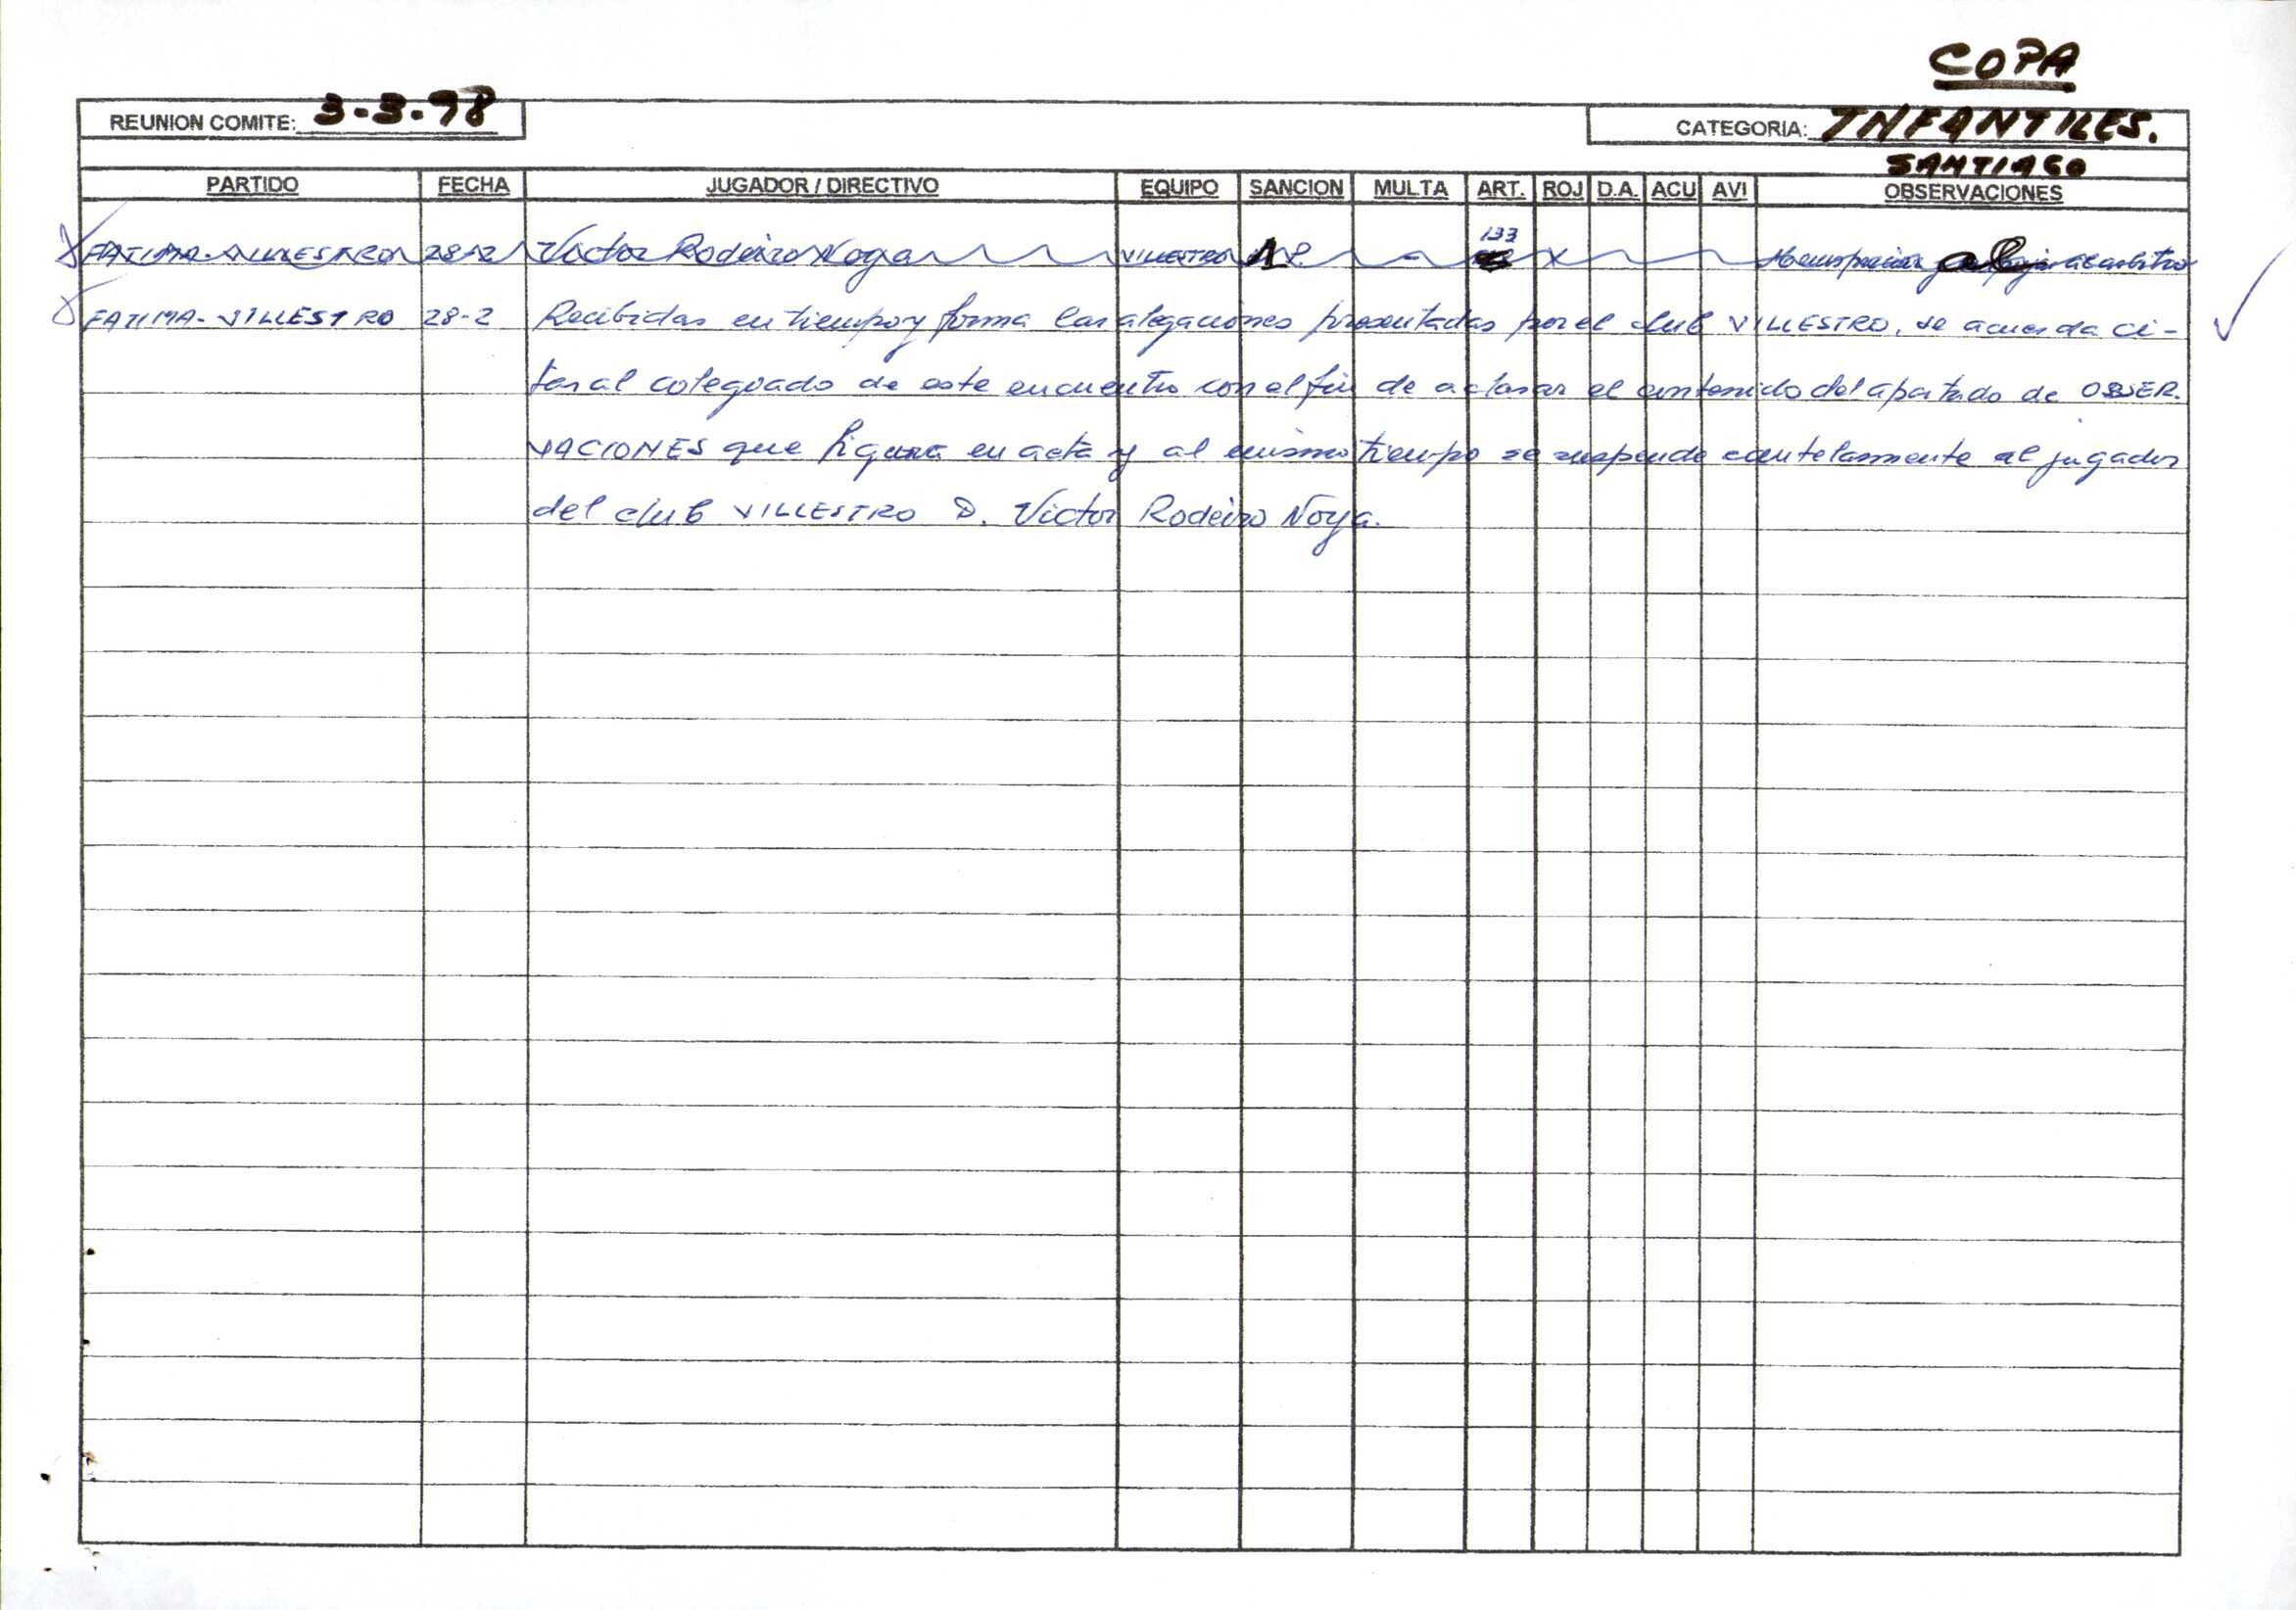 COPA
REUNION COMITE: 3-3-98
CATEGORIA: INFANTILES.
SANTIAGO
PARTIDO FECHA JUGADOR / DIRECTIVO EQUIPO SANCION MULTA ART. ROJ D.A. ACU AVI OBSERVACIONES
133
FATIMA-VILLESTRO 28-2 Victor Rodeiro Noya VILLESTRO 1 P. - X al arbitro
FATIMA-VILLESTRO 28-2 Recibidas en tiempo y forma las alegaciones presentadas por el club VILLESTRO, se acuerda ci-
tar al colegiado de este encuentro con el fin de aclarar el contenido del apartado de OBSER-
VACIONES que figura en acta y al mismo tiempo se suspende cautelarmente al jugador
del club VILLESTRO D. Victor Rodeiro Noya.